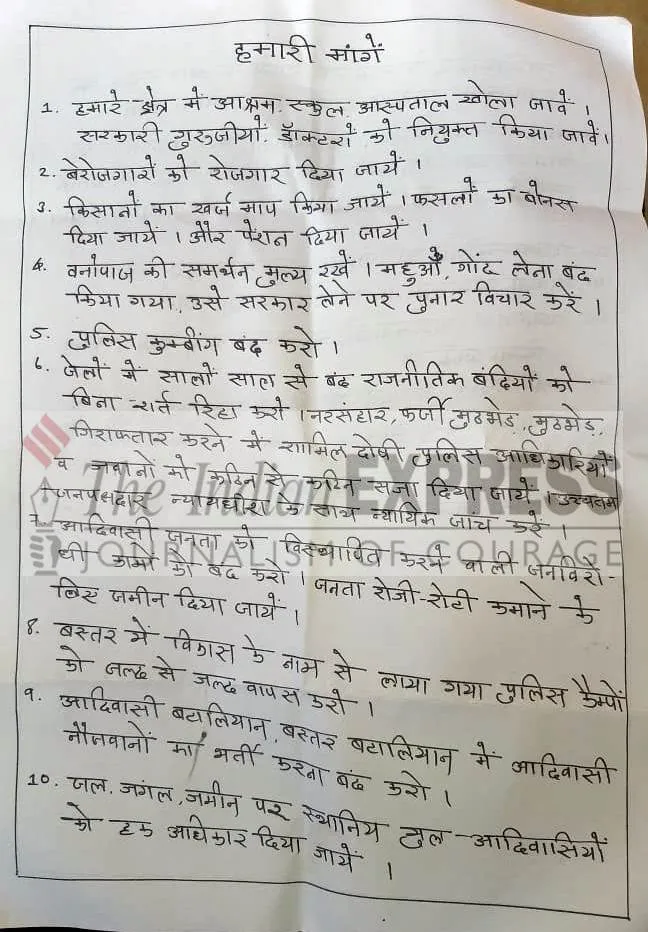 हमारी मांगें
1. हमारे क्षेत्र में आश्रम, स्कुल, अस्पताल खोला जावें ।
सरकारी गुरुजीयों, डॉक्टरों को नियुक्त किया जावें।
2. बेरोजगारों को रोजगार दिया जायें ।
3. किसानों का खर्ज माप किया जायें । फसलों का बोनस
दिया जायें । और पेंशन दिया जायें ।
4. वनोपाज की समर्थन मुल्य रखें । महुओं, गोंद लेना बंद
किया गया, उसे सरकार लेने पर पुनार विचार करें ।
5. पुलिस कुम्बींग बंद करो ।
6. जेलों में सालों साल से बंद राजनीतिक बंदियों को
बिना शर्त रिहा करो । नरसंहार, फर्जी मुठभेड, मुठभेड,
गिराफतार करने में शामिल दोषी पुलिस अधिकारियों
व जवानों को कठिन से कठिन सजा दिया जायें । उच्चतम
जनपक्षदार न्यायधीश के साथ न्यायिक जाच करें ।
7. आदिवासी जनता को विस्थापित करने वाली जनविरो-
धी कामों को बंद करो । जनता रोजी-रोटी कमाने के
लिए जमीन दिया जायें ।
8. बस्तर में विकास के नाम से लाया गया पुलिस कैम्पों
को जल्द से जल्द वापस करो ।
9. आदिवासी बटालियान, बस्तर बटालियान में आदिवासी
नौजवानों का भर्ती करना बंद करो ।
10. जल, जगंल, जमीन पर स्थानिय मुल-आदिवासियों
को हक अधिकार दिया जायें ।
The Indian EXPRESS
JOURNALISM OF COURAGE